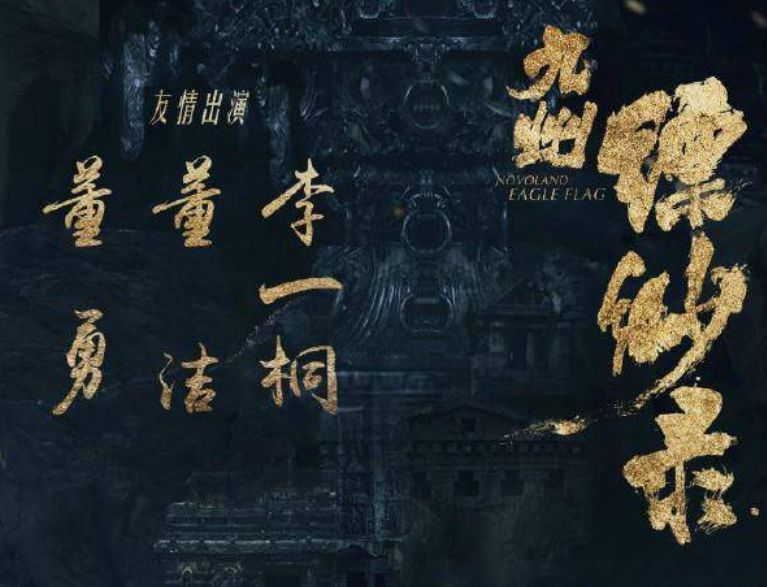 九州
缥缈录
NOVOLAND
EAGLE FLAG
友情出演
李一桐
董洁
董勇